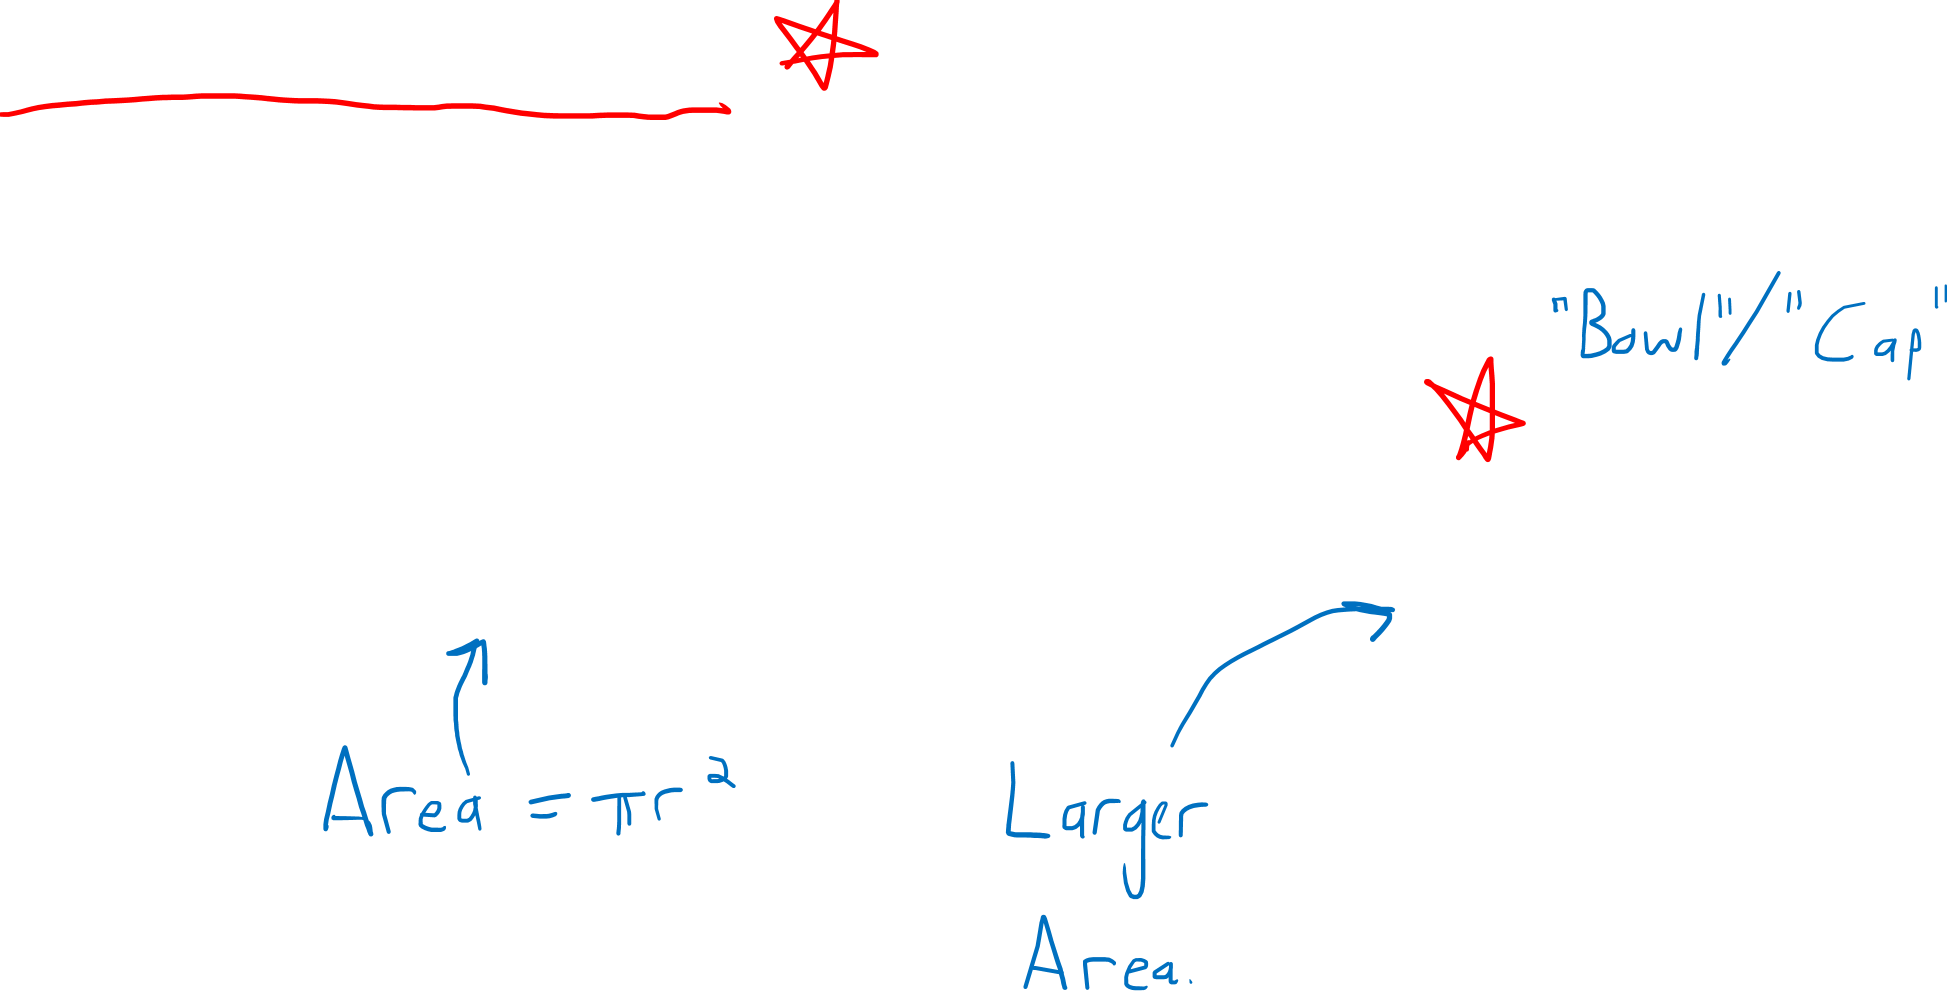 "Bowl"/"Cap"
Area = πr²
Larger
Area.